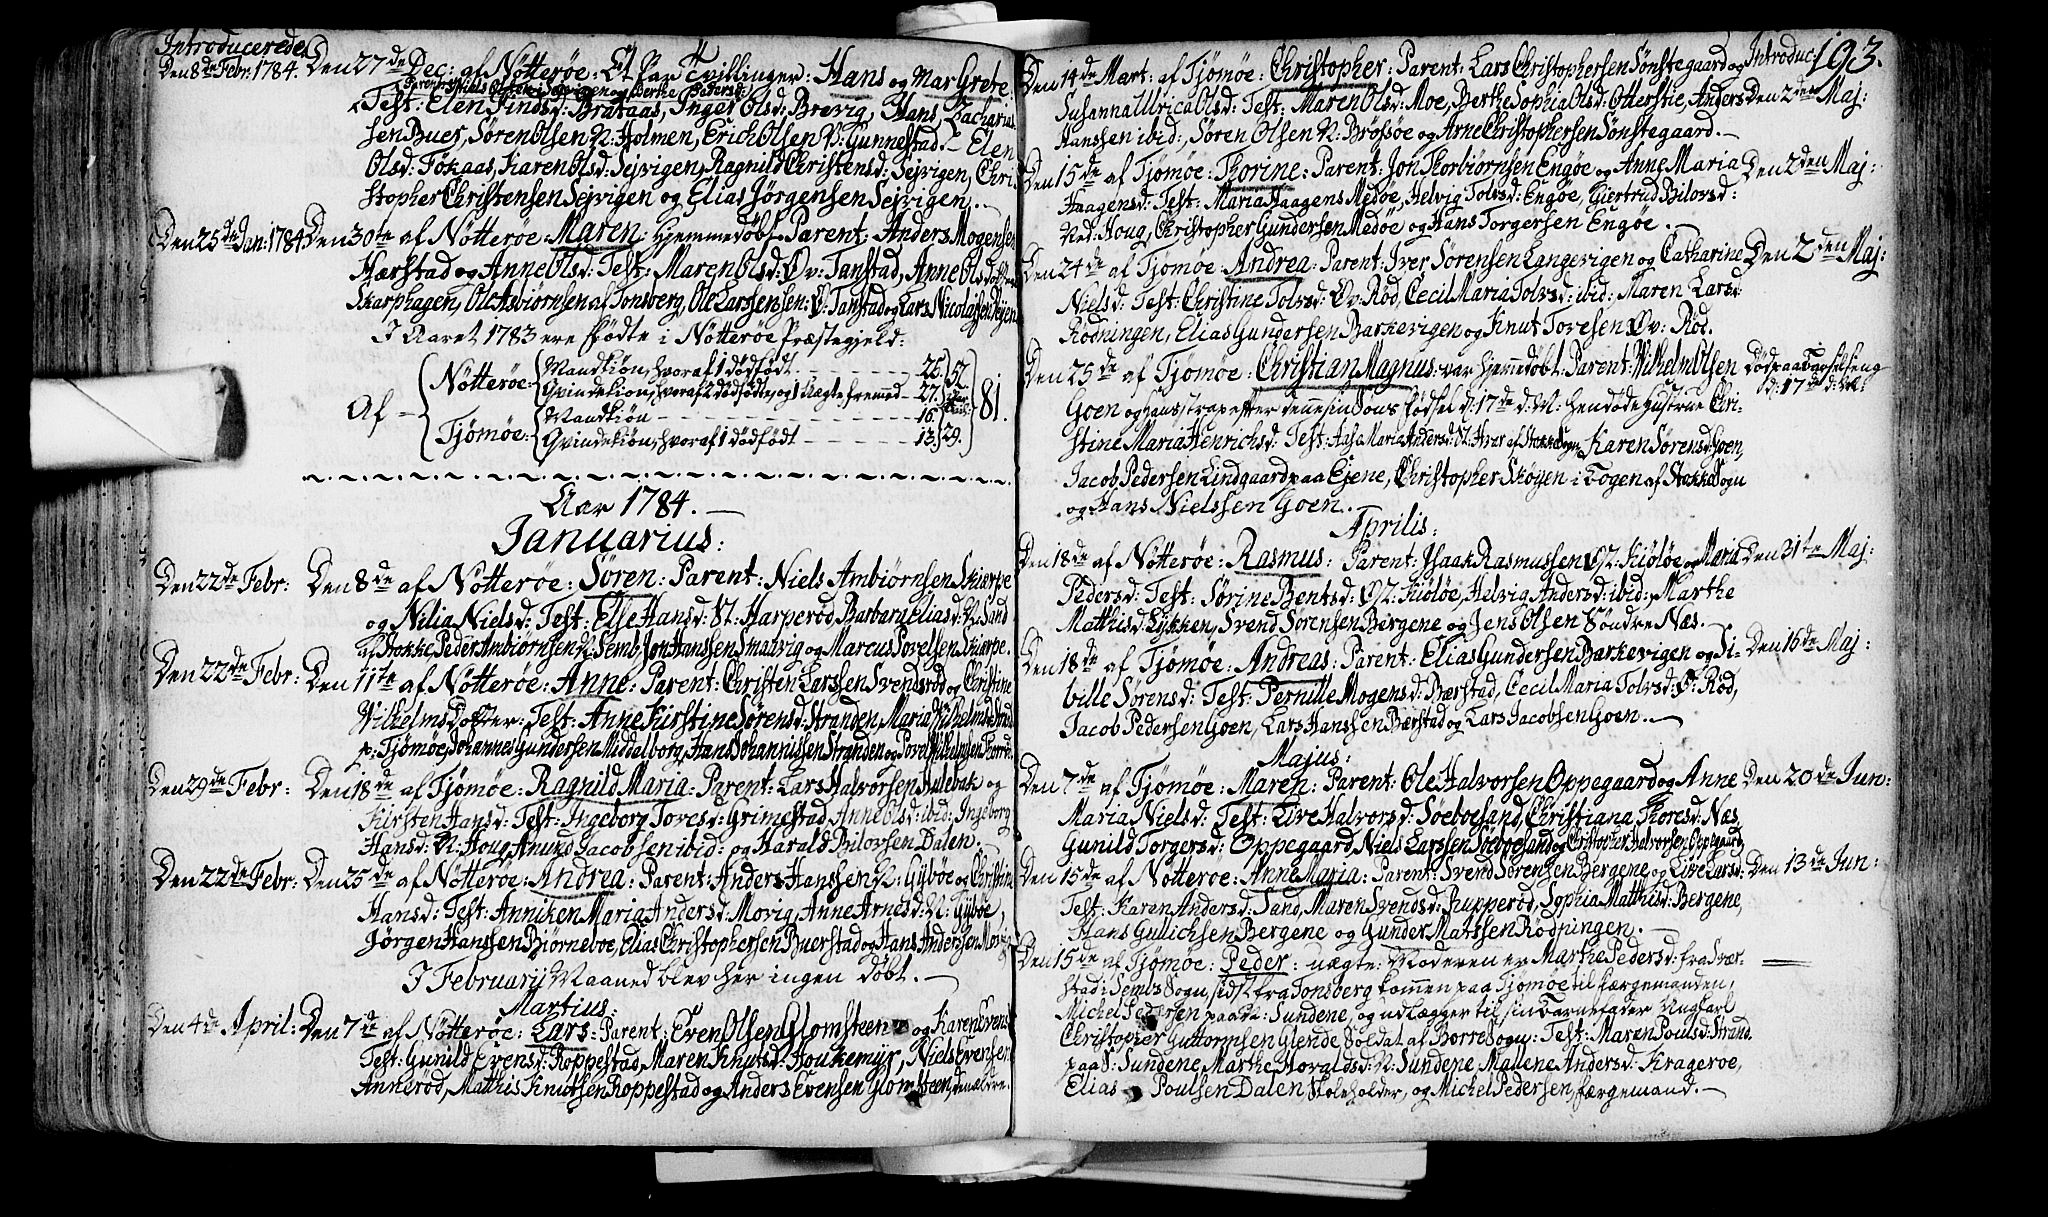 Introducerede
Den 8de Febr: 1784. Den 27de Dec: af Nötterøe: Et Par Tvillinger: Hans og Margrete
Parent: Niels Olsen Sejvigen og Berthe Pedersd:
Test: Elen Findsd: Brataas, Inger Olsd: Brevig, Hans Zacharias-
sen Buer, Søren Olsen N: Holmen, Erich Olsen V: Gunnestad. - Elen
Olsd: Tokaas, Karen Olsd: Sejvigen, Ragnild Christensd: Sejvigen, Chri-
stopher Christensen Sejvigen og Elias Jörgensen Sejvigen.
Den 25de Jan: 1784 Den 30te af Nötteroe: Maren: hjemmedöbt Parent: Anders Mogensen
Hærstad og Anne Olsd: Test: Maren Olsd: Øv: Tanstad, Anne Olsd:
Skarphagen, Ole Asbiörnsen af Tonsberg, Ole Larssen: Ø: Tanstad og Lars Nicolaissen
I Aaret 1783 ere födte i Nötteröe Præstegjeld:
Af - Nötteröe: Mandkiön, hvoraf 1 dödfödt - - - 25. 52.
Qvindekiön, hvoraf 2 dödfödte, og 1 Uægte fremmed - 27. 81.
Tjömöe: Mandkiön - - - 16.
Qvindekiön, hvoraf 1 dödfödt - - - 13. 29.
Aar 1784. -
Januarius:
Den 22de Febr: Den 8de af Nötteröe: Sören: Parent: Niels Ambiörnsen Skierpe
og Nilia Nielsd: Test: Elle Hansd: N: Harperöd, Barbara Eliasd: N: Sand
af Stokke, Peder Ambiörnsen N: Semb, Jon Hanssen Smidsvig og Marcus Povelsen Skierpe.
Den 22de Febr: Den 11te af Nötteröe: Anne: Parent: Christen Larssen Svendsröd og Christine
Wilhelms Dotter: Test: Anne Kirstine Sörensd: Stranden, Maria Wilhelmsd:
p: Tjömöe, Johannes Gundersen Middelborg, Hans Johannissen Stranden og Povel Wilhelmsen
Den 29de Febr: Den 18de af Tjömöe: Ragnild Maria: Parent: Lars Halvorsen Hulebak og
Kirsten Hansd: Test: Ingeborg Toresd: Grimestad, Anne Olsd: ibid: Ingeborg
Hansd: N: Houg, Anund Jacobsen ibid: og Harald Bilovsen Dalen.
Den 22de Febr: Den 25de af Nötteröe: Andrea: Parent: Anders Hanssen N: Gyböe og Christine
Hansd: Test: Anniken Maria Andersd: Movig, Anne Arnesd: N: Gyböe,
Jörgen Hanssen Biörneboe, Elias Christophersen Buerstad og Hans Anderssen Movig
I Februarij Maaned blev her ingen döbt. -
Martius:
Den 4de April: Den 7de af Nötteröe: Lars: Parent: Even Olsen Glomsteen og Karen Evensd:
Test: Gunild Evensd: Roppestad, Maren Knutsd: Houkemyr, Niels Evensen
Annerød, Mathis Knutsen Roppestad og Anders Evensen Glomsteen, den ældre.
193.
Introduc:
Den 14de Mart: af Tjömöe: Christopher: Parent: Lars Christophersen Sönstegaard og
Susanna Ulrica Olsd: Test: Maren Olsd: Moe, Berthe Sophia Olsd: Otterstie, Anders Den 2den Maj:
Hanssen ibid:, Sören Olsen N: Brössöe og Arne Christophersen Sönstegaard. -
Den 15de af Tjömöe: Thorine: Parent: Jon Thorbiörnsen Engöe og Anne Maria Den 2den Maj:
Haagensd: Test: Maria Haagens Medöe, Helvig Tolvsd: Engöe, Giertrud Bilovsd:
Ned: Houg, Christopher Gundersen Medöe og Hans Torgersen Engöe.
Den 24de af Tjömöe: Andrea: Parent: Iver Sörensen Langevigen og Catharine Den 2den Maj:
Nielsd: Test: Christine Tolvsd: Øv: Röd, Cecil Maria Tolvsd: ibid: Maren Larsd:
Rödningen, Elias Gundersen Barkevigen og Knut Toresen Øv: Röd.
Den 25de af Tjömöe: Christian Magnus: var hjemmedöbt. Parent: Wilhelm Olsen Död paa Barselseng
Goen og Hans strax efter denne sin Söns födsel d: 17de d: M: hendöde Hustrue Chri- d: 17de d: M:
stine Maria Henrichsd: Test: Aase Maria Andersd: N: Hvar af Stokke Sogn, Karen Sörensd: Goen,
Jacob Pedersen Lindgaard paa Ejene, Christopher Skögen i Togen af Stokke Sogn
og Hans Nielssen Goen.
Aprilis:
Den 18de af Nötteröe: Rasmus: Parent: Isaak Rasmussen Ø: Kiölöe og Maria Den 31te Maj:
Pedersd: Test: Sörine Bentsd: Ø: Kiölöe, Helvig Andersd: ibid:, Marthe
Matthisd: Lykken, Svend Sörensen Bergene og Jens Olsen Söndre Næs.
Den 18de af Tjömöe: Andreas: Parent: Elias Gundersen Barkevigen og Si- Den 16de Maj:
bille Sörensd: Test: Pernille Mogensd: Bærstad, Cecil Maria Tolvsd: Ø: Röd,
Jacob Pedersen Goen, Lars Hanssen Bærstad og Lars Jacobsen Goen. -
Majus:
Den 7de af Tjömöe: Maren: Parent: Ole Halvorsen Oppegaard og Anne Den 20de Jun:
Maria Nielsd: Test: Live Halvorsd: Söeboesand, Christiana Thoresd: Næs,
Gunild Torgersd: Oppegaard, Niels Larssen Söeboesand og Christopher Halvorsen Oppegaard
Den 15de af Nötteröe: Anne Maria: Parent: Svend Sörensen Bergene og Live Larsd: Den 13de Jun:
Test: Karen Andersd: Sand, Maren Svendsd: Rupperöd, Sophia Matthisd: Bergene,
Hans Gullichsen Bergene og Gunder Matssen Rödningen. -
Den 15de af Tjömöe: Peder: uægte: Moderen er Marthe Pedersd: fra Bær-
stad: Sembs Sogn, sidst fra Tonsberg kommen paa Tjömöe til færgemanden,
Michel Pedersen paa N: Sundene, og udlægger til sin Barnefader Ungkarl
Christopher Guttormsen Glende Soldat af Borre Sogn: Test: Maren Poulsd: Strand.
paa S: Sundene, Marthe Horaldsd: N: Sundene, Malene Andersd: Krageröe,
Elias Poulsen Dalen Skoleholder, og Michel Pedersen, færgemand. -